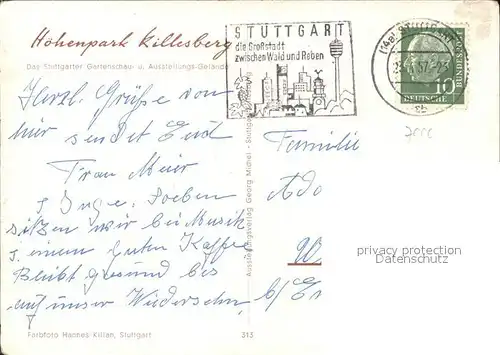 Höhenpark Killesberg
Das Stuttgarter Gartenschau- u. Ausstellungs-Gelände
STUTTGART
die Großstadt
zwischen Wald und Reben
(14a) STUTTGART
10
DEUTSCHE
BUNDESPOST
Herzl. Grüße von
hier sendet Euch
Frau Meier
u. Inge. Soeben
sitzen wir bei Musik
u. einem guten Kaffee
Bleibt gesund bis
auf unser Wiedersehn,
Familie
Ado
W
b/
privacy protection
Datenschutz
Ausstellungsverlag Georg Michel - Stuttgart
Farbfoto Hannes Kilian, Stuttgart
315